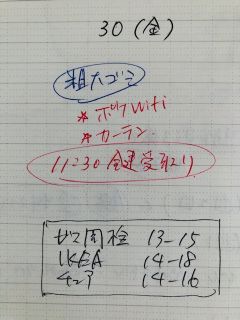 30 (金)
粗大ゴミ
* ポケWifi
* カーテン
11:30 鍵受取り
ガス開栓 13-15
IKEA 14-18
チェア 14-16